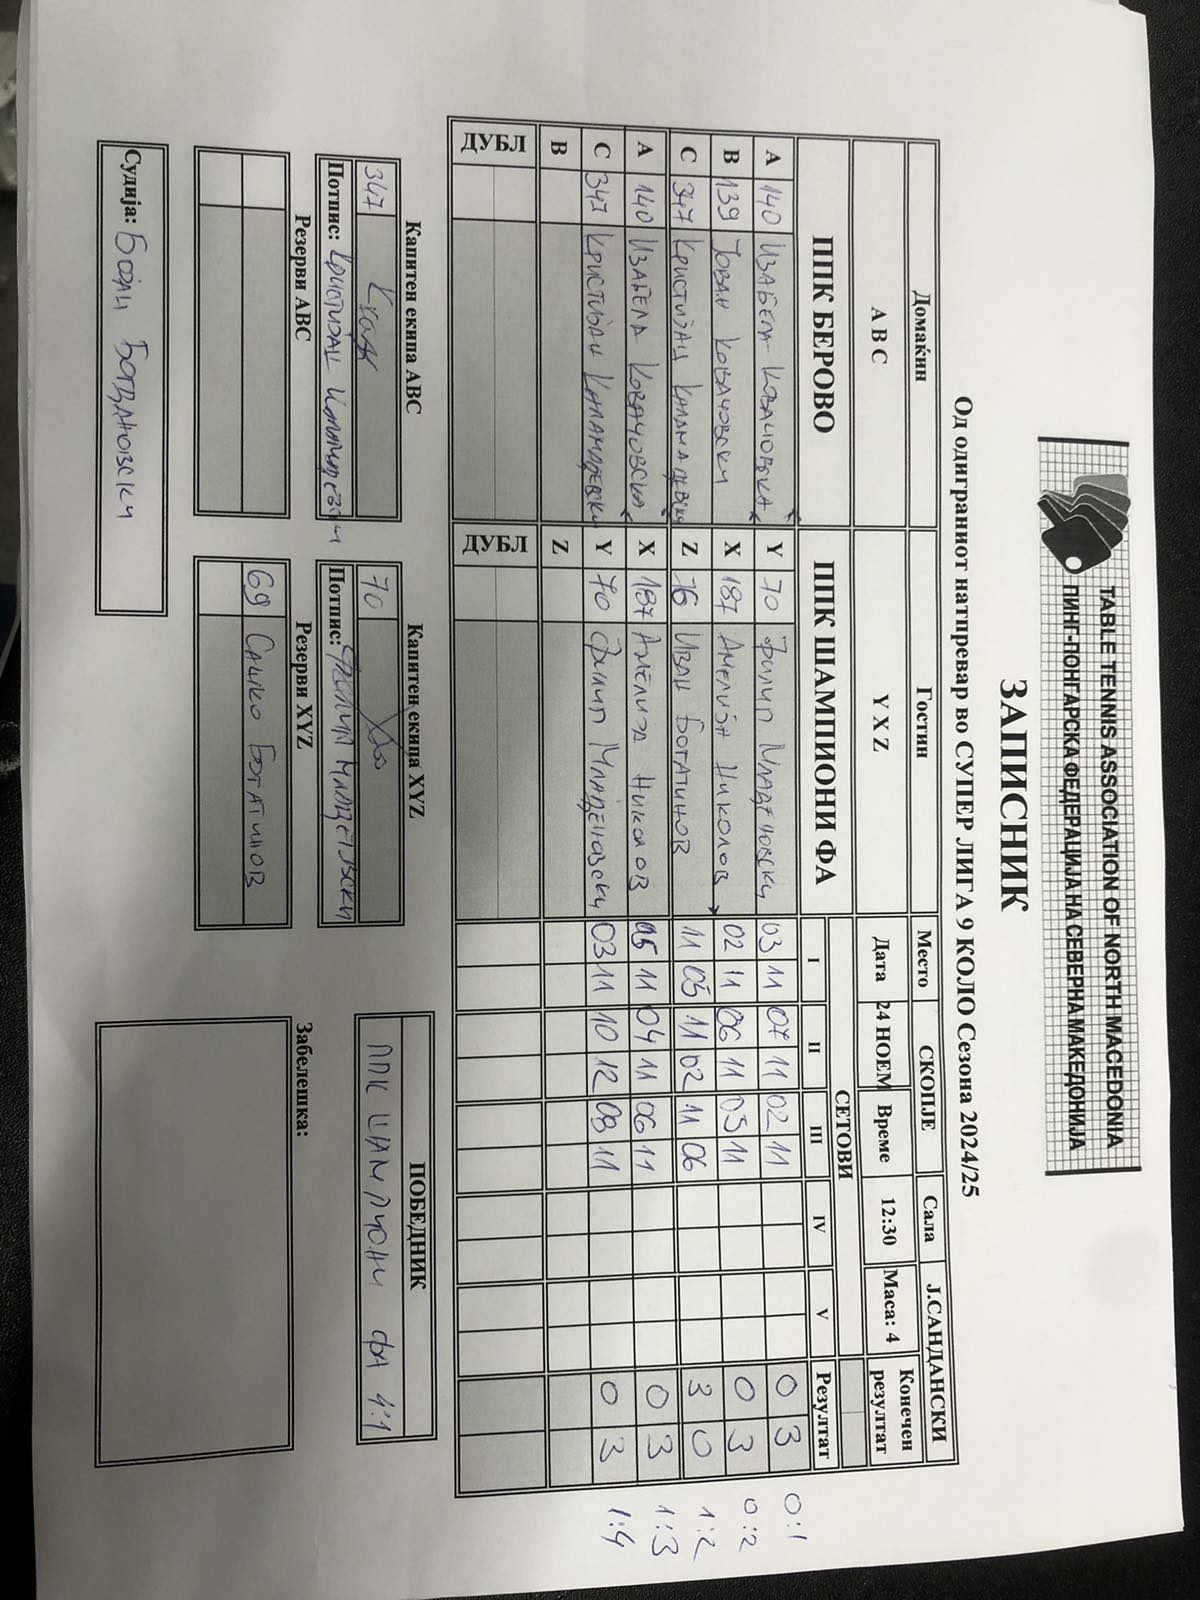 TABLE TENNIS ASSOCIATION OF NORTH MACEDONIA
ПИНГ-ПОНГАРСКА ФЕДЕРАЦИЈА НА СЕВЕРНА МАКЕДОНИЈА
ЗАПИСНИК
Од одиграниот натпревар во СУПЕР ЛИГА 9 КОЛО Сезона 2024/25
Домаќин Гостин Место СКОПЈЕ Сала Ј.САНДАНСКИ
A B C Y X Z Дата 24 НОЕМ Време 12:30 Маса: 4 Конечен резултат
ППК БЕРОВО ППК ШАМПИОНИ ФА СЕТОВИ
I II III IV V Резултат
A 140 ИЗАБЕЛА КОВАЧОВСКА Y 70 ФИЛИП МЛАДЕНОВСКИ 03 11 07 11 02 11 0 3 0:1
B 139 ЈОВАН КОВАЧОВСКИ X 187 АМЕЛИЈА НИКОЛОВ 02 11 06 11 03 11 0 3 0:2
C 347 КРИСТИЈАН Z 76 ИВАН БОГАТИНОВ 11 05 11 02 11 06 3 0 1:2
A 140 ИЗАБЕЛА КОВАЧОВСКА X 187 АМЕЛИЈА НИКОЛОВ 05 11 04 11 06 11 0 3 1:3
C 347 КРИСТИЈАН Y 70 ФИЛИП МЛАДЕНОВСКИ 03 11 10 12 08 11 0 3 1:4
B Z
ДУБЛ ДУБЛ
Капитен екипа ABC Капитен екипа XYZ ПОБЕДНИК
347 70 ППК ШАМПИОНИ ФА 4:1
Потпис: КРИСТИЈАН Потпис: ФИЛИП
Резерви ABC Резерви XYZ Забелешка:
69 САШКО БОГАТИНОВ
Судија: БОЈАН БОГДАНОВСКИ